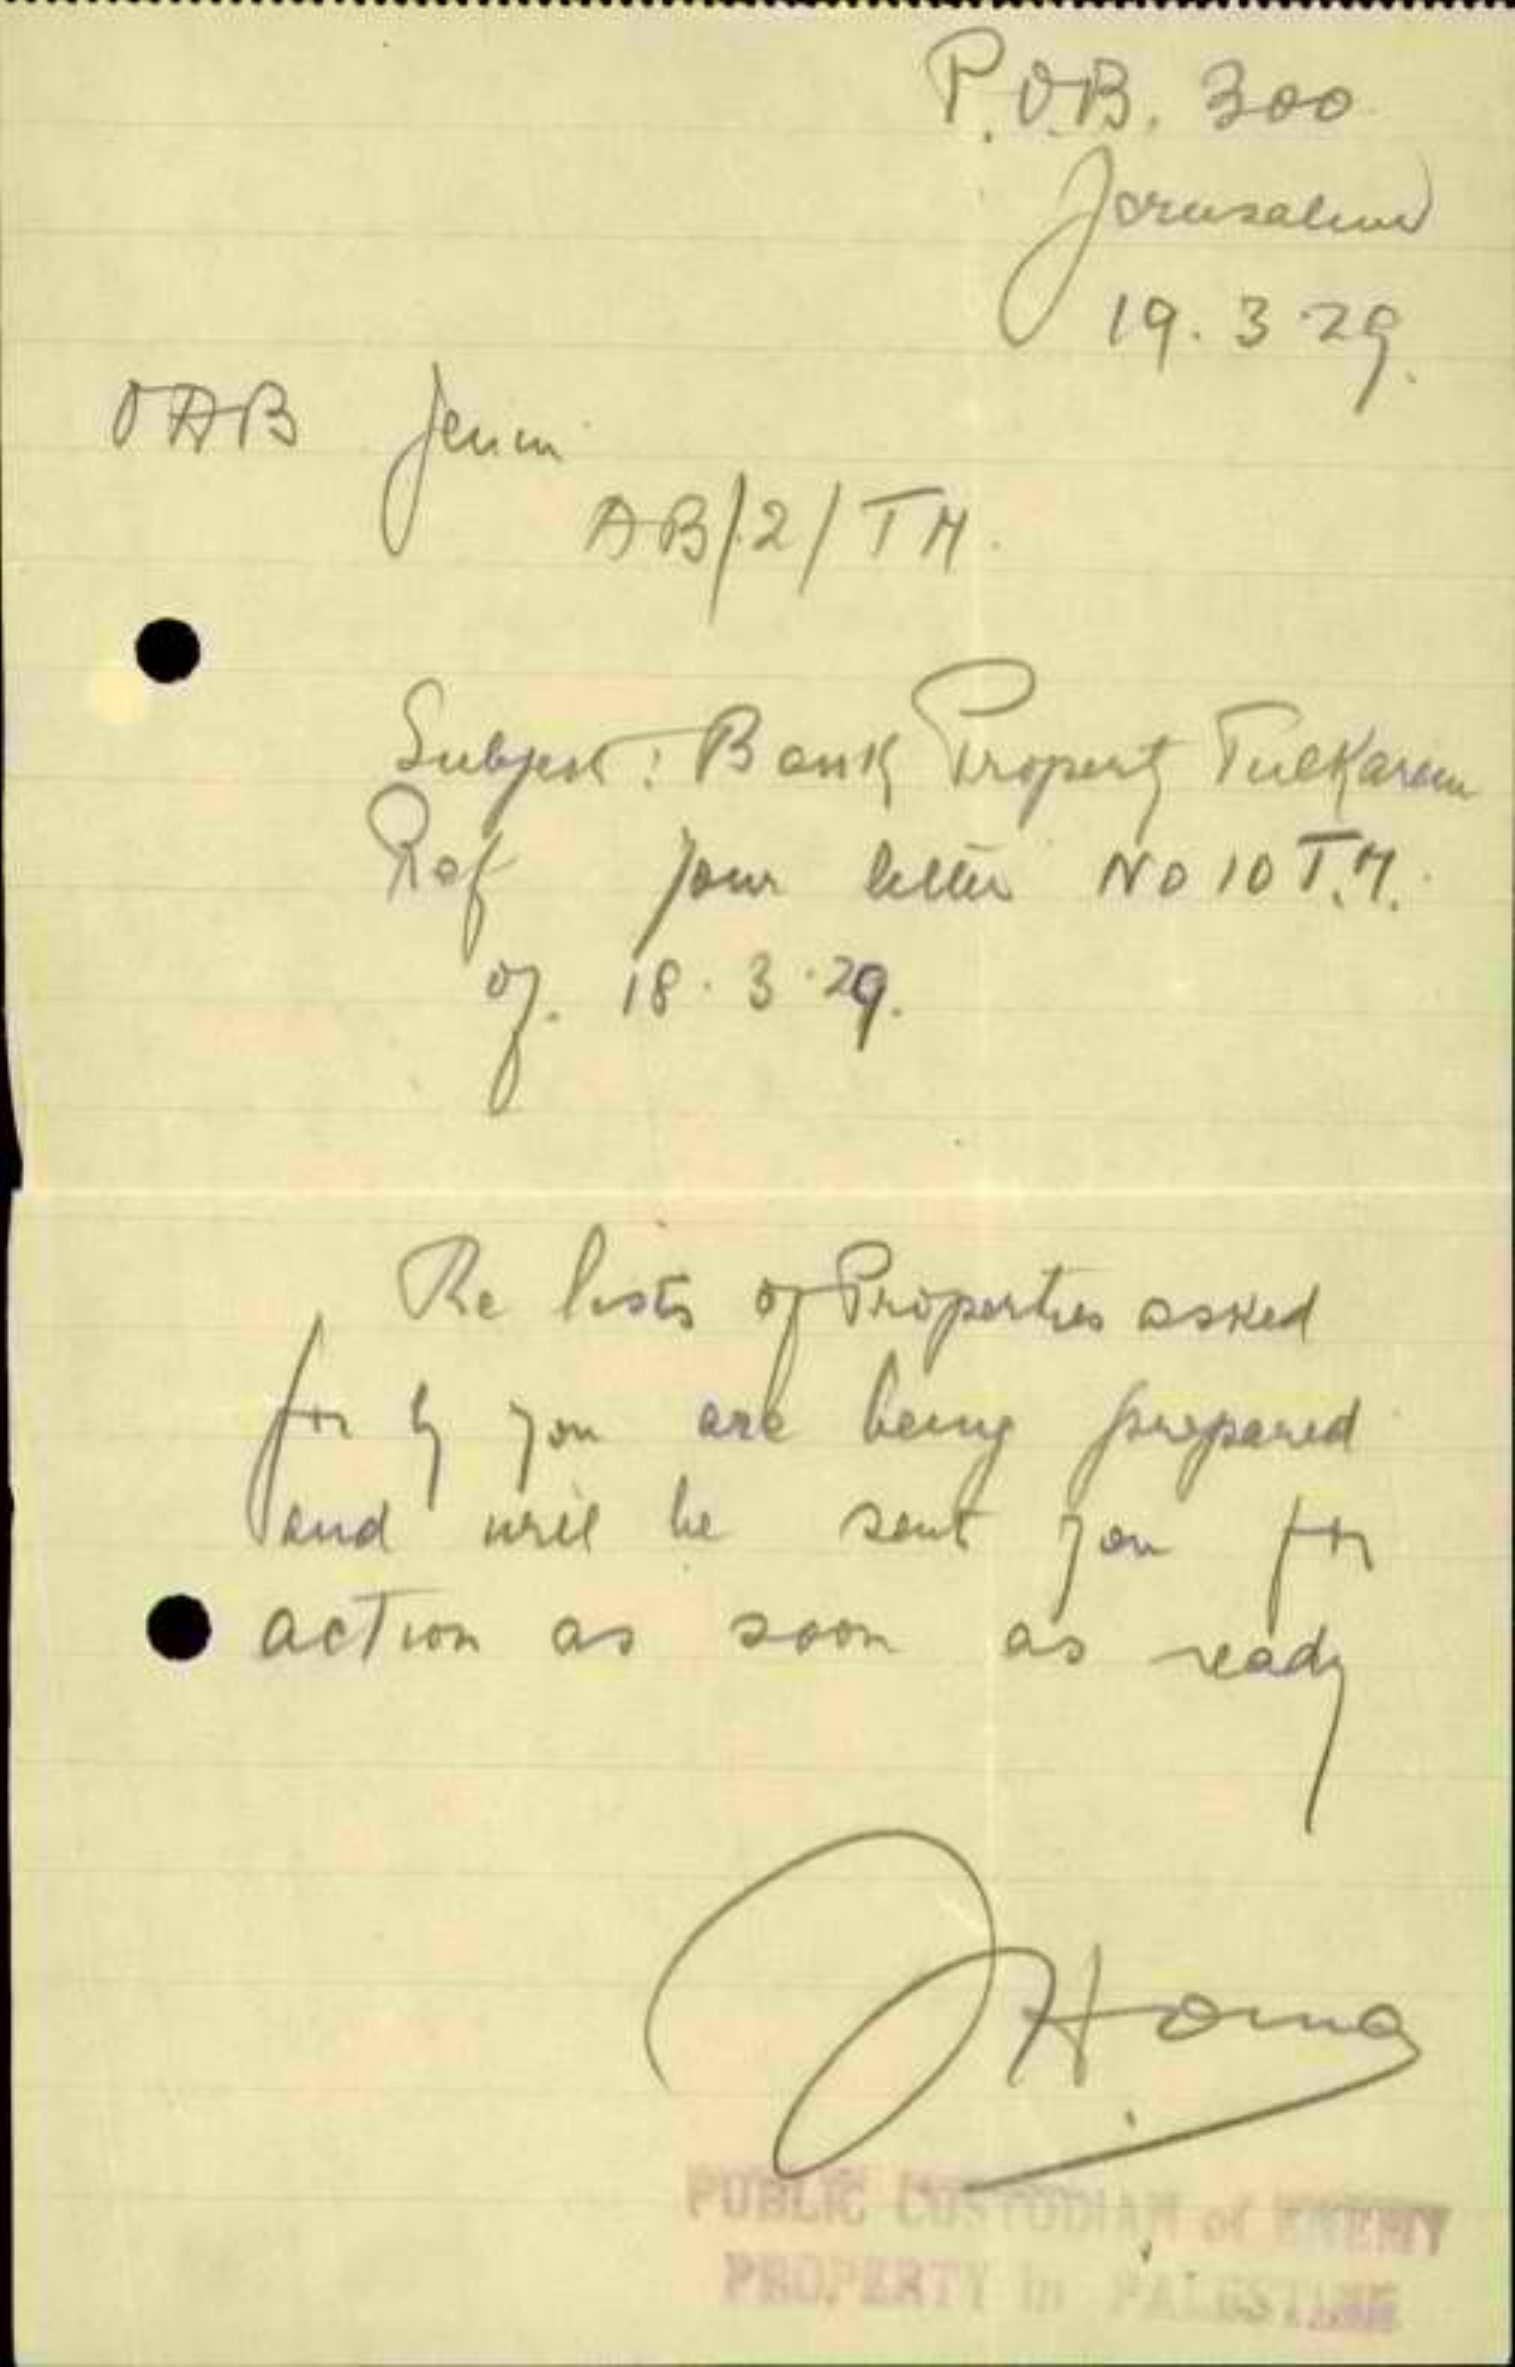 P.O.B. 300
Jerusalem
19.3.29.
OAB Jenin
AB/2/TM.
Subject: Bank Property Tulkarem
Ref your letter No 10 T.M.
of. 18.3.29.
The lists of Properties asked
for by you are being prepared
and will be sent you for
action as soon as ready
PUBLIC CUSTODIAN of ENEMY
PROPERTY in PALESTINE